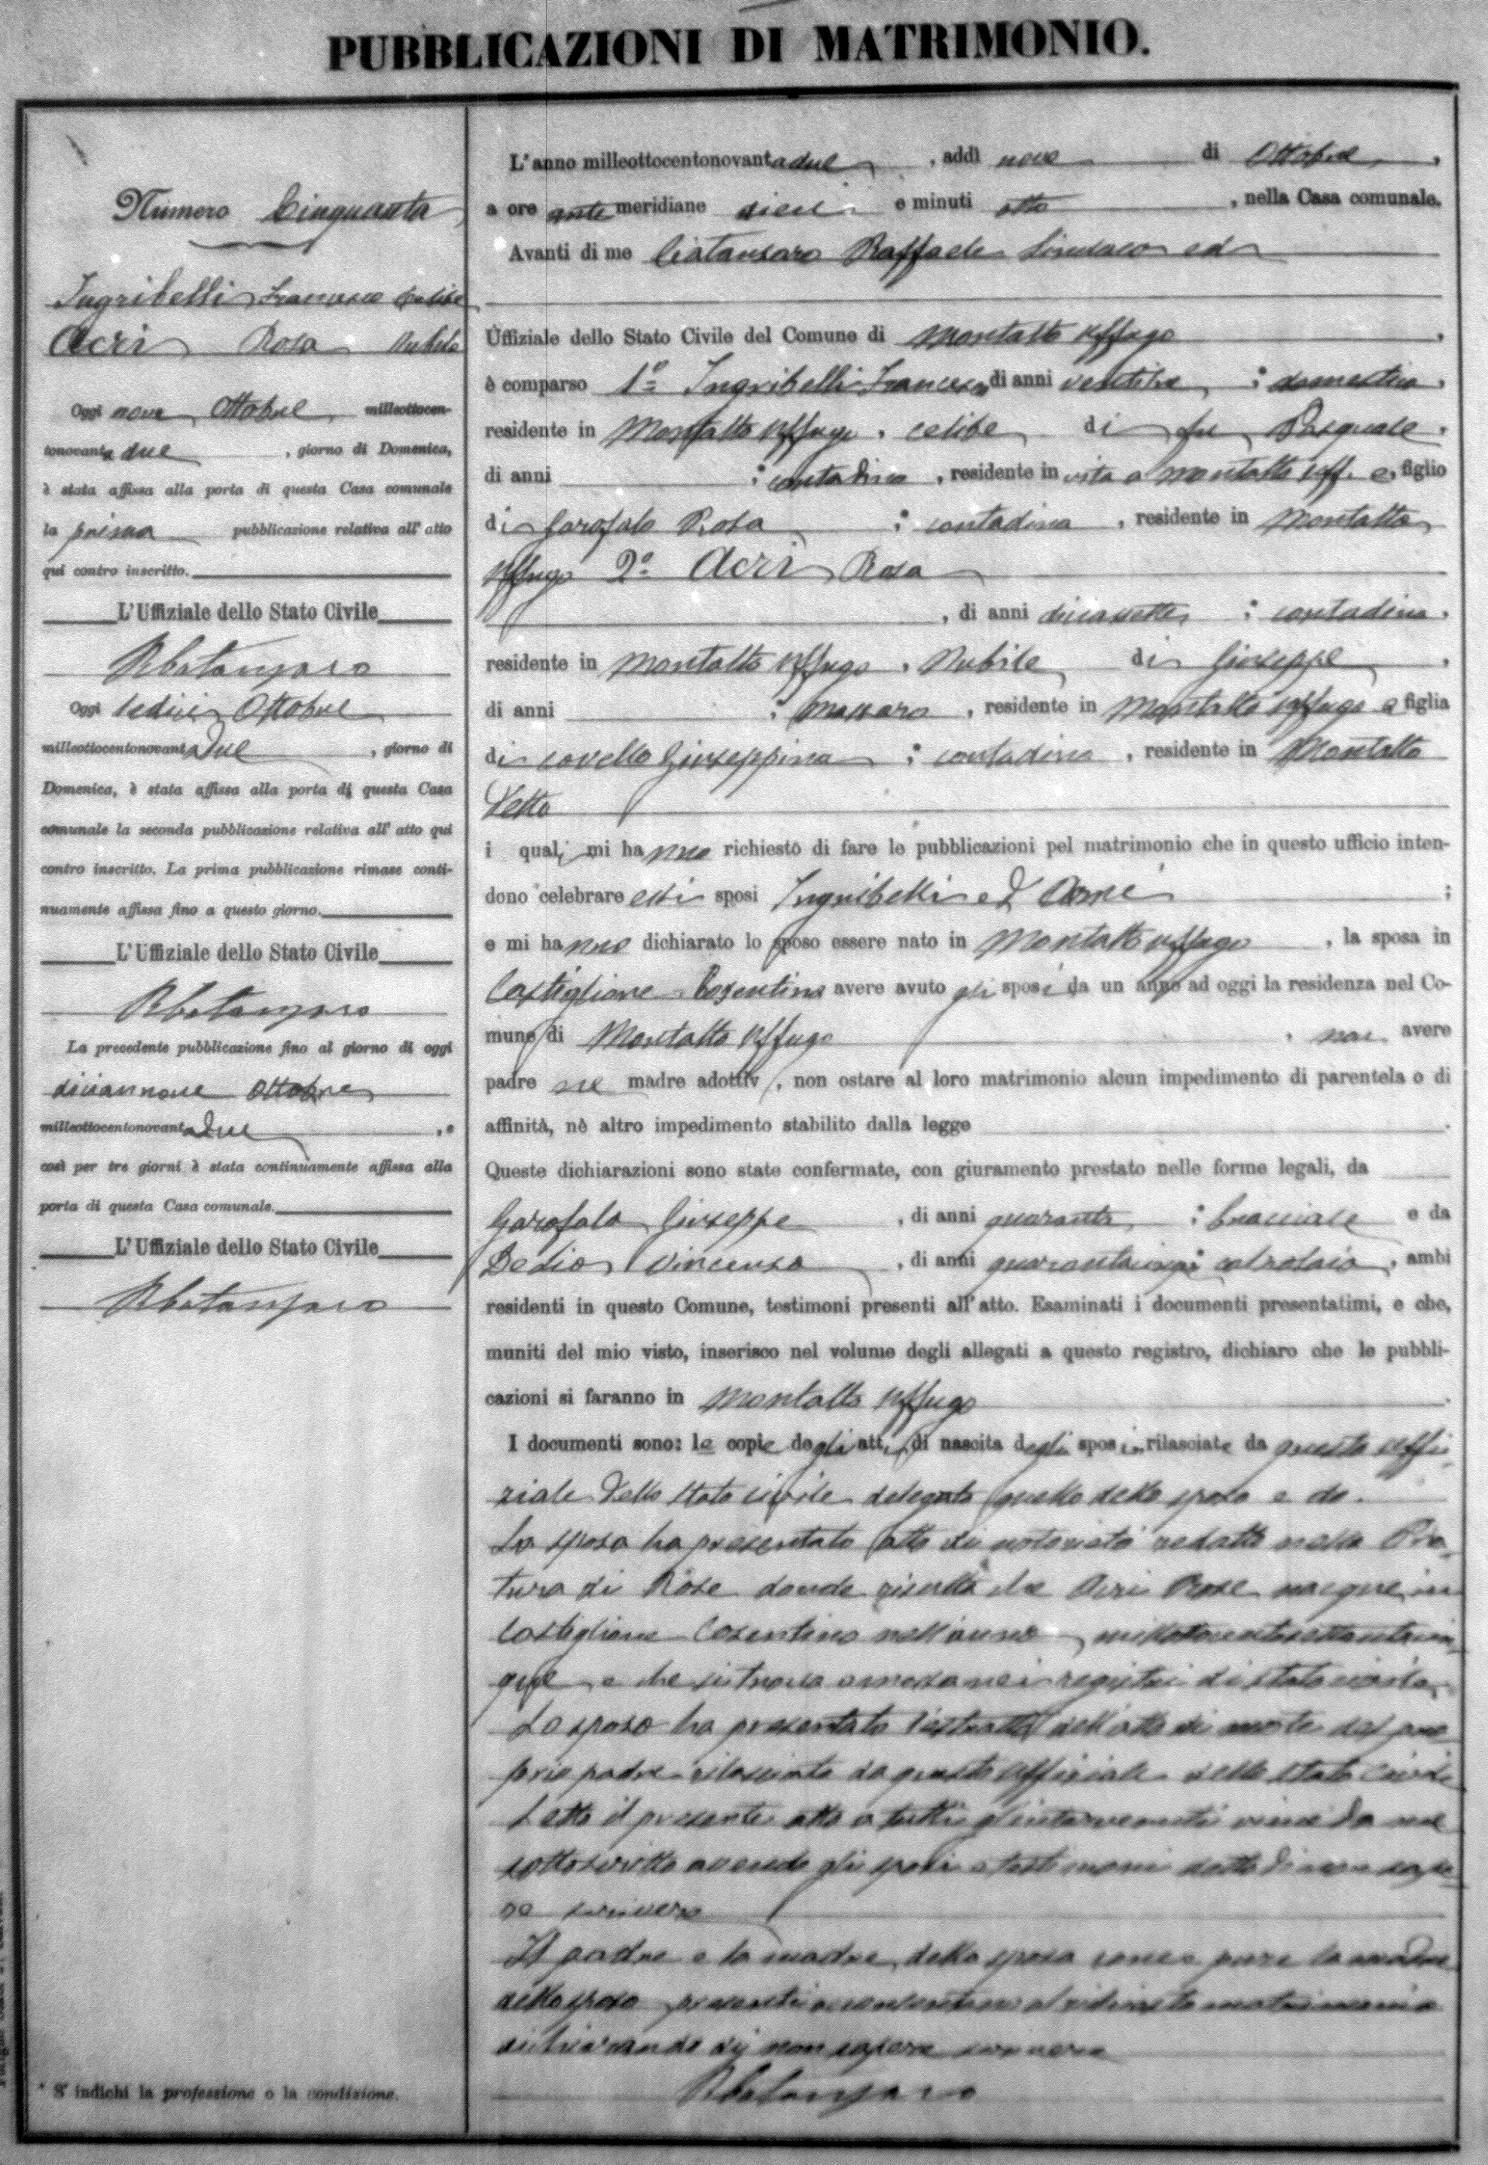 PUBBLICAZIONI DI MATRIMONIO.
Numero Cinquanta
Ingribelli Francesco Celibe
Acri Rosa Nubile
Oggi nove Ottobre milleottocen-
tonovantadue, giorno di Domenica,
è stata affissa alla porta di questa Casa comunale
la prima pubblicazione relativa all' atto
qui contro inscritto.
L'Uffiziale dello Stato Civile
RCatanzaro
Oggi sedici Ottobre
milleottocentonovantadue, giorno di
Domenica, è stata affissa alla porta di questa Casa
comunale la seconda pubblicazione relativa all' atto qui
contro inscritto. La prima pubblicazione rimase conti-
nuamente affissa fino a questo giorno.
L'Uffiziale dello Stato Civile
RCatanzaro
La precedente pubblicazione fino al giorno di oggi
diciannove Ottobre
milleottocentonovantadue, e
così per tre giorni è stata continuamente affissa alla
porta di questa Casa comunale.
L'Uffiziale dello Stato Civile
RCatanzaro
* S' indichi la professione o la condizione.
L'anno milleottocentonovantadue, addì nove di Ottobre,
a ore antemeridiane dieci e minuti otto, nella Casa comunale.
Avanti di me Catanzaro Raffaele Sindaco ed
Uffiziale dello Stato Civile del Comune di Montalto Uffugo,
è comparso 1º Ingribelli Francesco di anni ventitre, domestico,
residente in Montalto Uffugo, celibe di fu Pasquale,
di anni ; contadino, residente in vita a Montalto Uff. e, figlio
di Garofalo Rosa ; contadina, residente in Montalto
Uffugo 2º Acri Rosa
, di anni diciassette ; contadina,
residente in Montalto Uffugo, Nubile di Giuseppe,
di anni ; massaro, residente in Montalto Uffugo e figlia
di Covello Giuseppina ; contadina, residente in Montalto
detto
i quali mi hanno richiesto di fare le pubblicazioni pel matrimonio che in questo ufficio inten-
dono celebrare essi sposi Ingribelli ed Acri ;
e mi hanno dichiarato lo sposo essere nato in Montalto Uffugo, la sposa in
Castiglione Cosentino avere avuto gli sposi da un anno ad oggi la residenza nel Co-
mune di Montalto Uffugo, non avere
padre ne madre adottiv, non ostare al loro matrimonio alcun impedimento di parentela o di
affinità, nè altro impedimento stabilito dalla legge
Queste dichiarazioni sono state confermate, con giuramento prestato nelle forme legali, da
Garofalo Giuseppe, di anni quaranta ; bracciale e da
Dedio Vincenzo, di anni quarantacinque ; calzolaio, ambi
residenti in questo Comune, testimoni presenti all' atto. Esaminati i documenti presentatimi, e che,
muniti del mio visto, inserisco nel volume degli allegati a questo registro, dichiaro che le pubbli-
cazioni si faranno in Montalto Uffugo
I documenti sono: le copie degli atti di nascita degli sposi rilasciate da questo uffi-
ziale dello stato civile delegato quello dello sposo e da.
La sposa ha presentato atto di notorietà redatto nella Pre-
tura di Rose donde risulta che Acri Rose nacque in
Castiglione Cosentino nell'anno milleottocentosettantacin-
que e che si trova omessa nei registri di stato civile.
Lo sposo ha presentato l'estratto dell'atto di morte del pro-
prio padre rilasciato da questo Uffiziale dello stato Civile
Letto il presente atto a tutti gl'intervenuti viene da me
sottoscritto avendo gli sposi e testimoni detto di non sape-
re scrivere
Il padre e la madre della sposa come pure la madre
dello sposo presenti acconsentono al richiesto matrimonio
dichiarando di non sapere scrivere
RCatanzaro